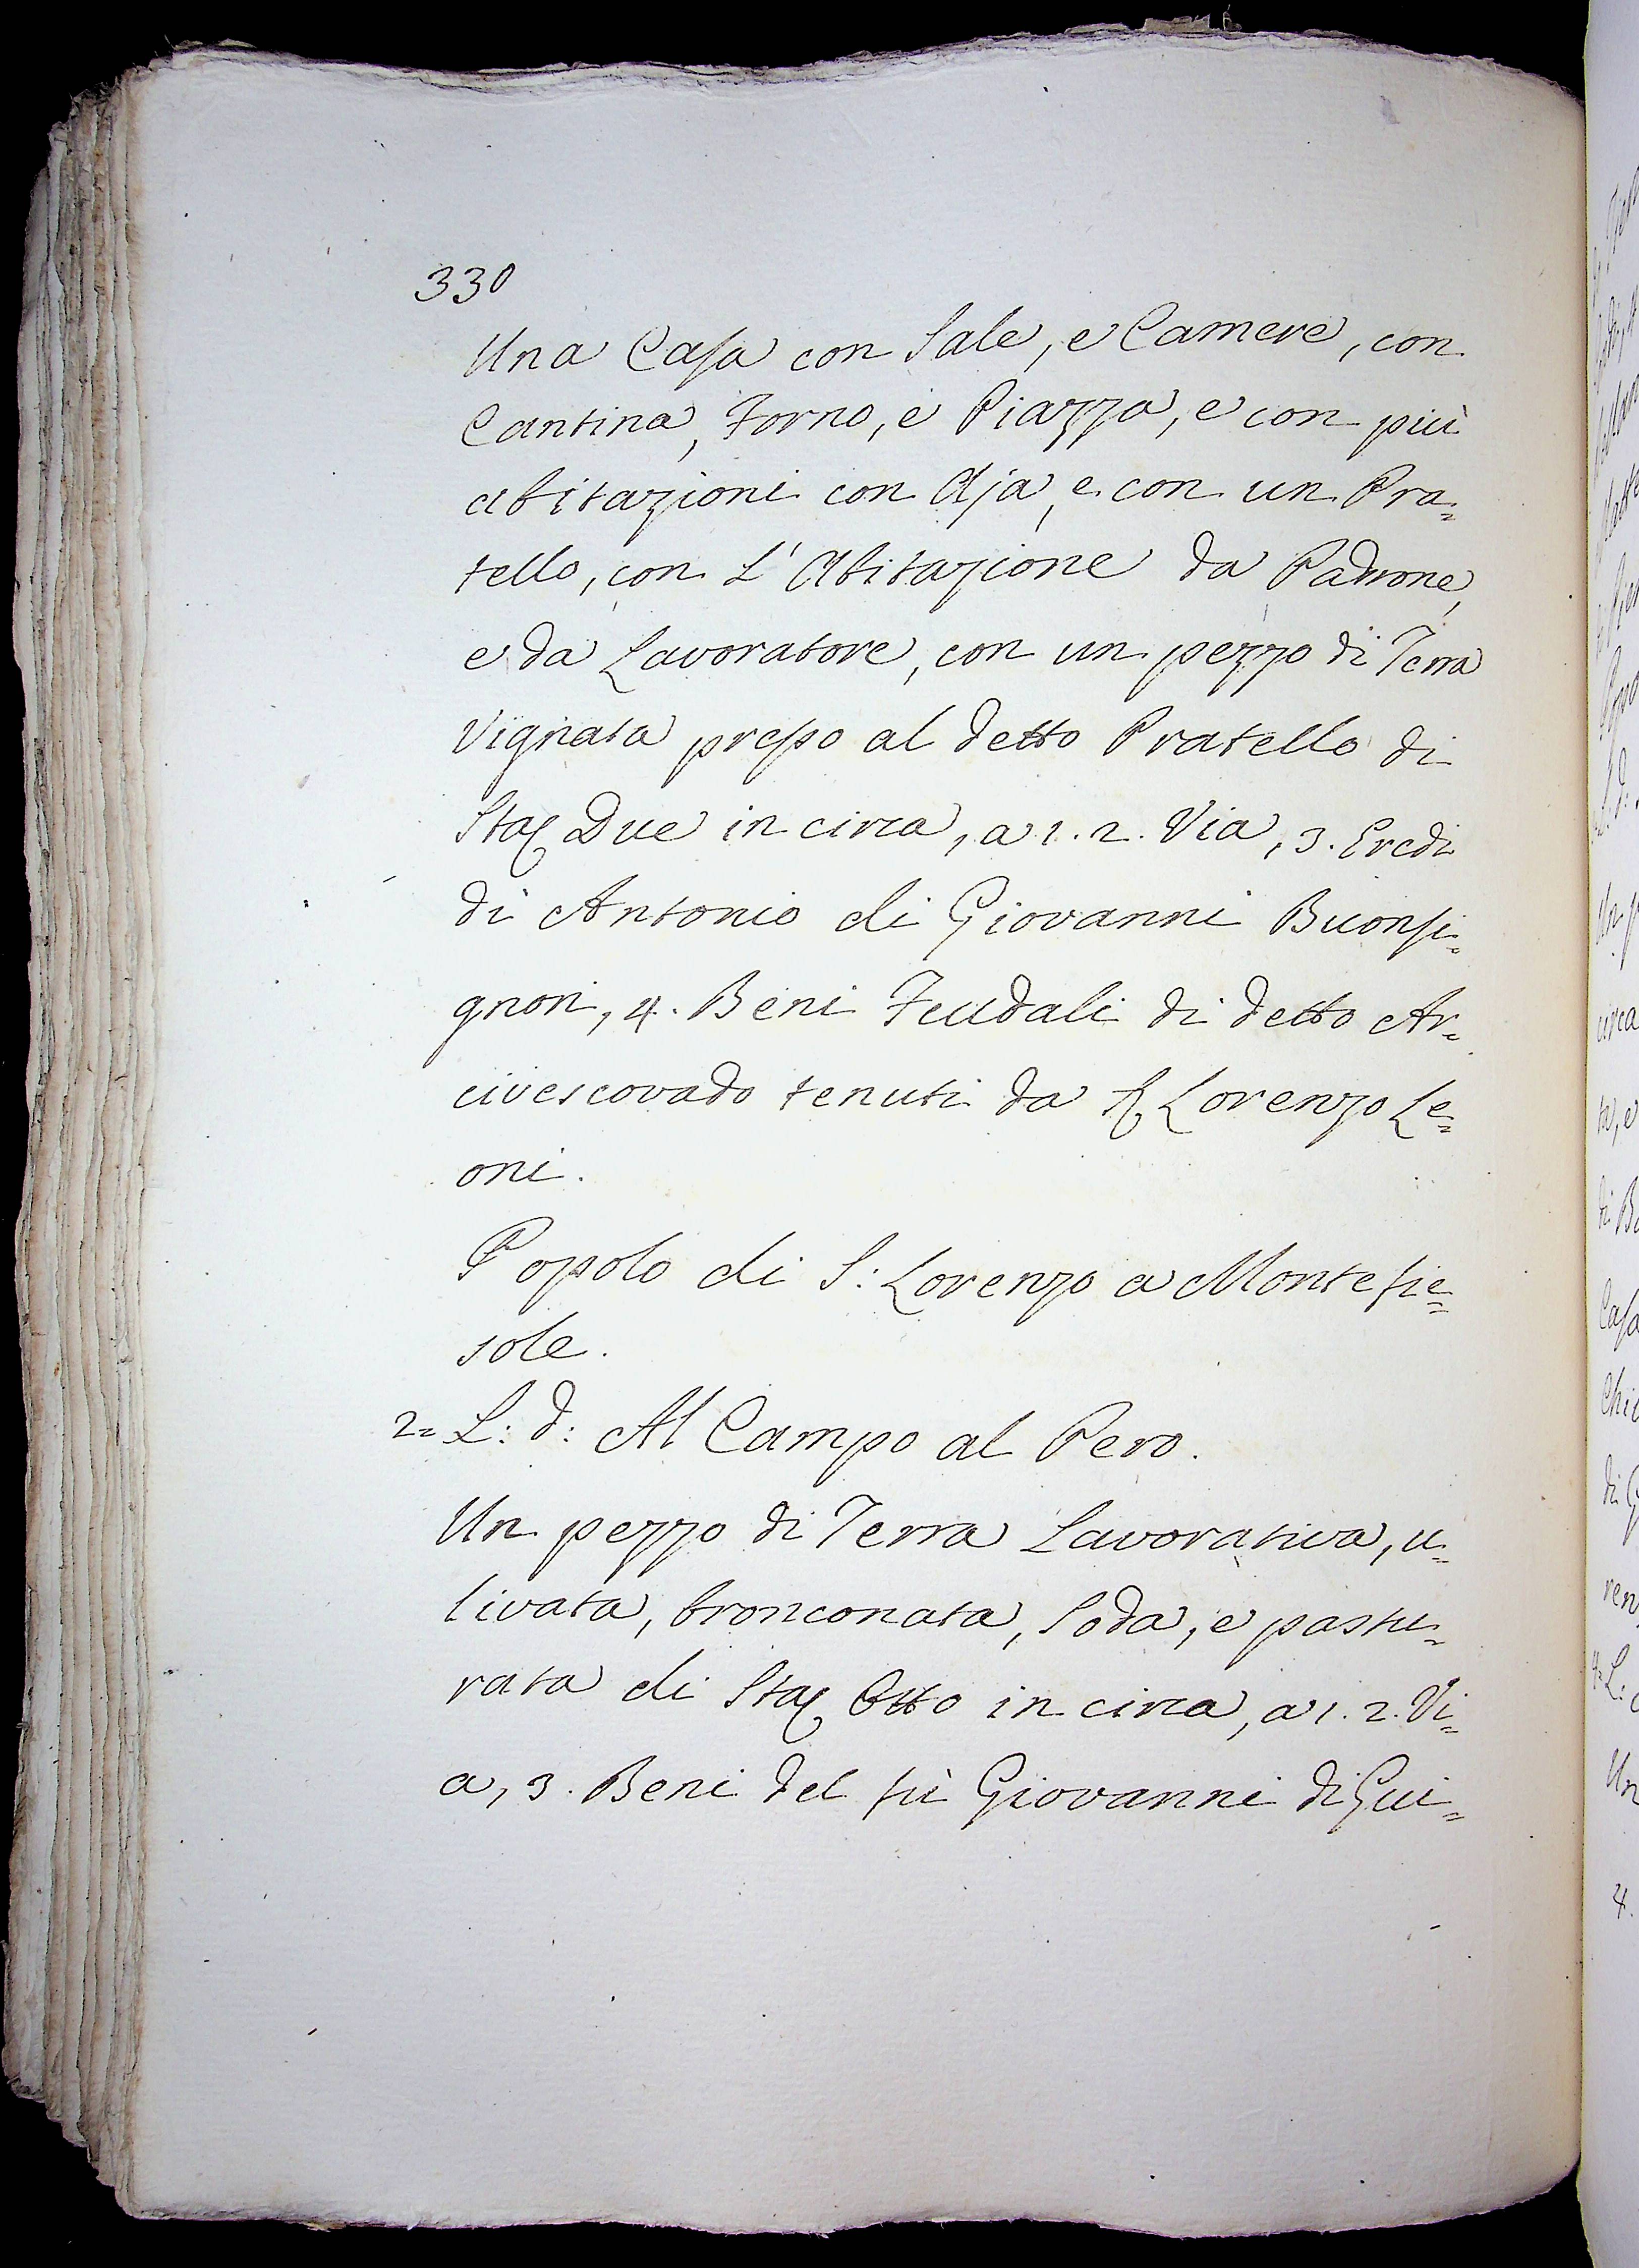 330
Una Casa con Sale, e Camere, con
Cantina, Forno, e Piazza, e con più
abitazioni con Aja, e con un Pra=
tello, con L'Abitazione da Padrone,
e da Lavoratore, con un pezzo di Terra
Vignata presso al detto Pratello di
Sta Due in circa, a 1. 2. Via, 3. Eredi
di Antonio di Giovanni Buonsi=
gnori, 4. Beni Feudali di detto Ar=
civescovado tenuti da Lorenzo Le=
oni.
Popolo di S: Lorenzo a Montefie=
sole.
2= L: d: Al Campo al Pero.
Un pezzo di Terra Lavorativa, u=
livata, bronconata, Soda, e pastu=
rata di Sta Otto in circa, a 1. 2. Vi=
a, 3. Beni del fù Giovanni di Gui=